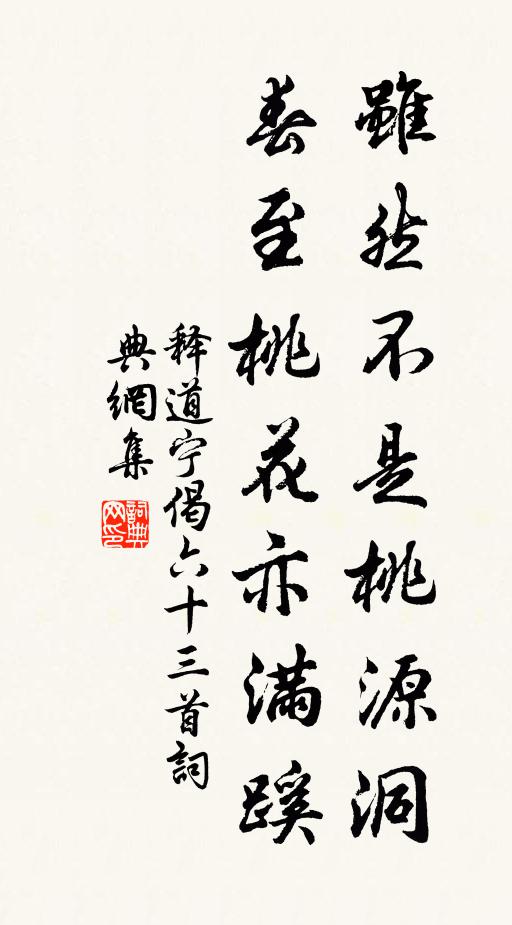 雖然不是桃源洞
春至桃花亦滿蹊
释道宁偈六十三首詞
典網集
詞典
网印